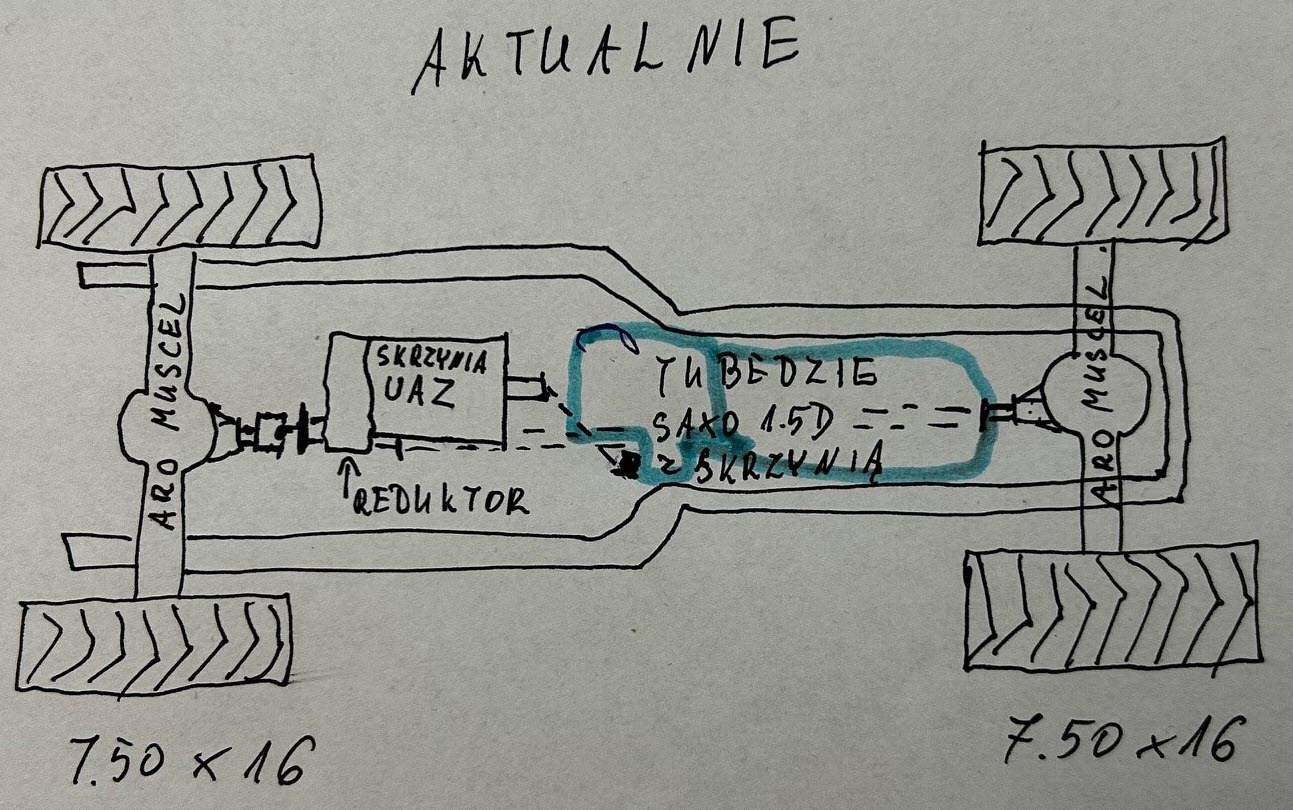 AKTUALNIE
ARO MUSCEL
SKRZYNIA
UAZ
REDUKTOR
TU BEDZIE
SAXO 1.5D
Z SKRZYNIĄ
ARO MUSCEL.
7.50 x 16
7.50 x 16